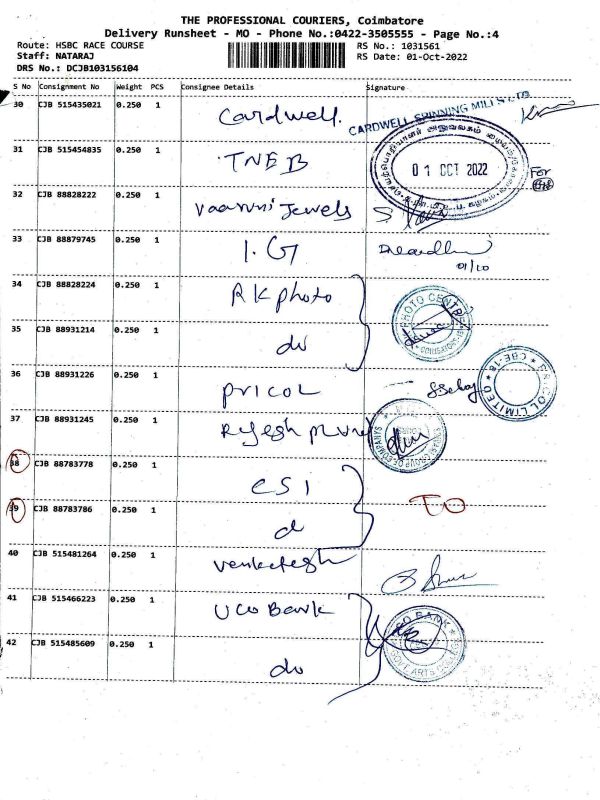 THE PROFESSIONAL COURIERS, Coimbatore
Delivery Runsheet - MO - Phone No.:0422-3505555 - Page No.:4
Route: HSBC RACE COURSE
RS No.: 1031561
Staff: NATARAJ
RS Date: 01-Oct-2022
DRS No.: DCJB103156104
S No Consignment No Weight PCS Consignee Details Signature
30 CJB 515435021 0.250 1 Cardwell.
CARDWELL SPINNING MILLS LTD
31 CJB 515454835 0.250 1 TNEB
01 OCT 2022
For
32 CJB 88828222 0.250 1 Vaarni Jewels
33 CJB 88879745 0.250 1 I.G
01/10
34 CJB 88828224 0.250 1 RK photo
PHOTO CENTRE
35 CJB 88931214 0.250 1 do
36 CJB 88931226 0.250 1 PRICOL
PRICOL LIMITED ★ CBE-18 ★
37 CJB 88931245 0.250 1
GROUP OF COMPANYS
38 CJB 88783778 0.250 1 CSI
39 CJB 88783786 0.250 1 d
TO
40 CJB 515481264 0.250 1 Venkatesh
41 CJB 515466223 0.250 1 UCO Bank
42 CJB 515485609 0.250 1 do
BANK
GOVT ARTS COLLEGE